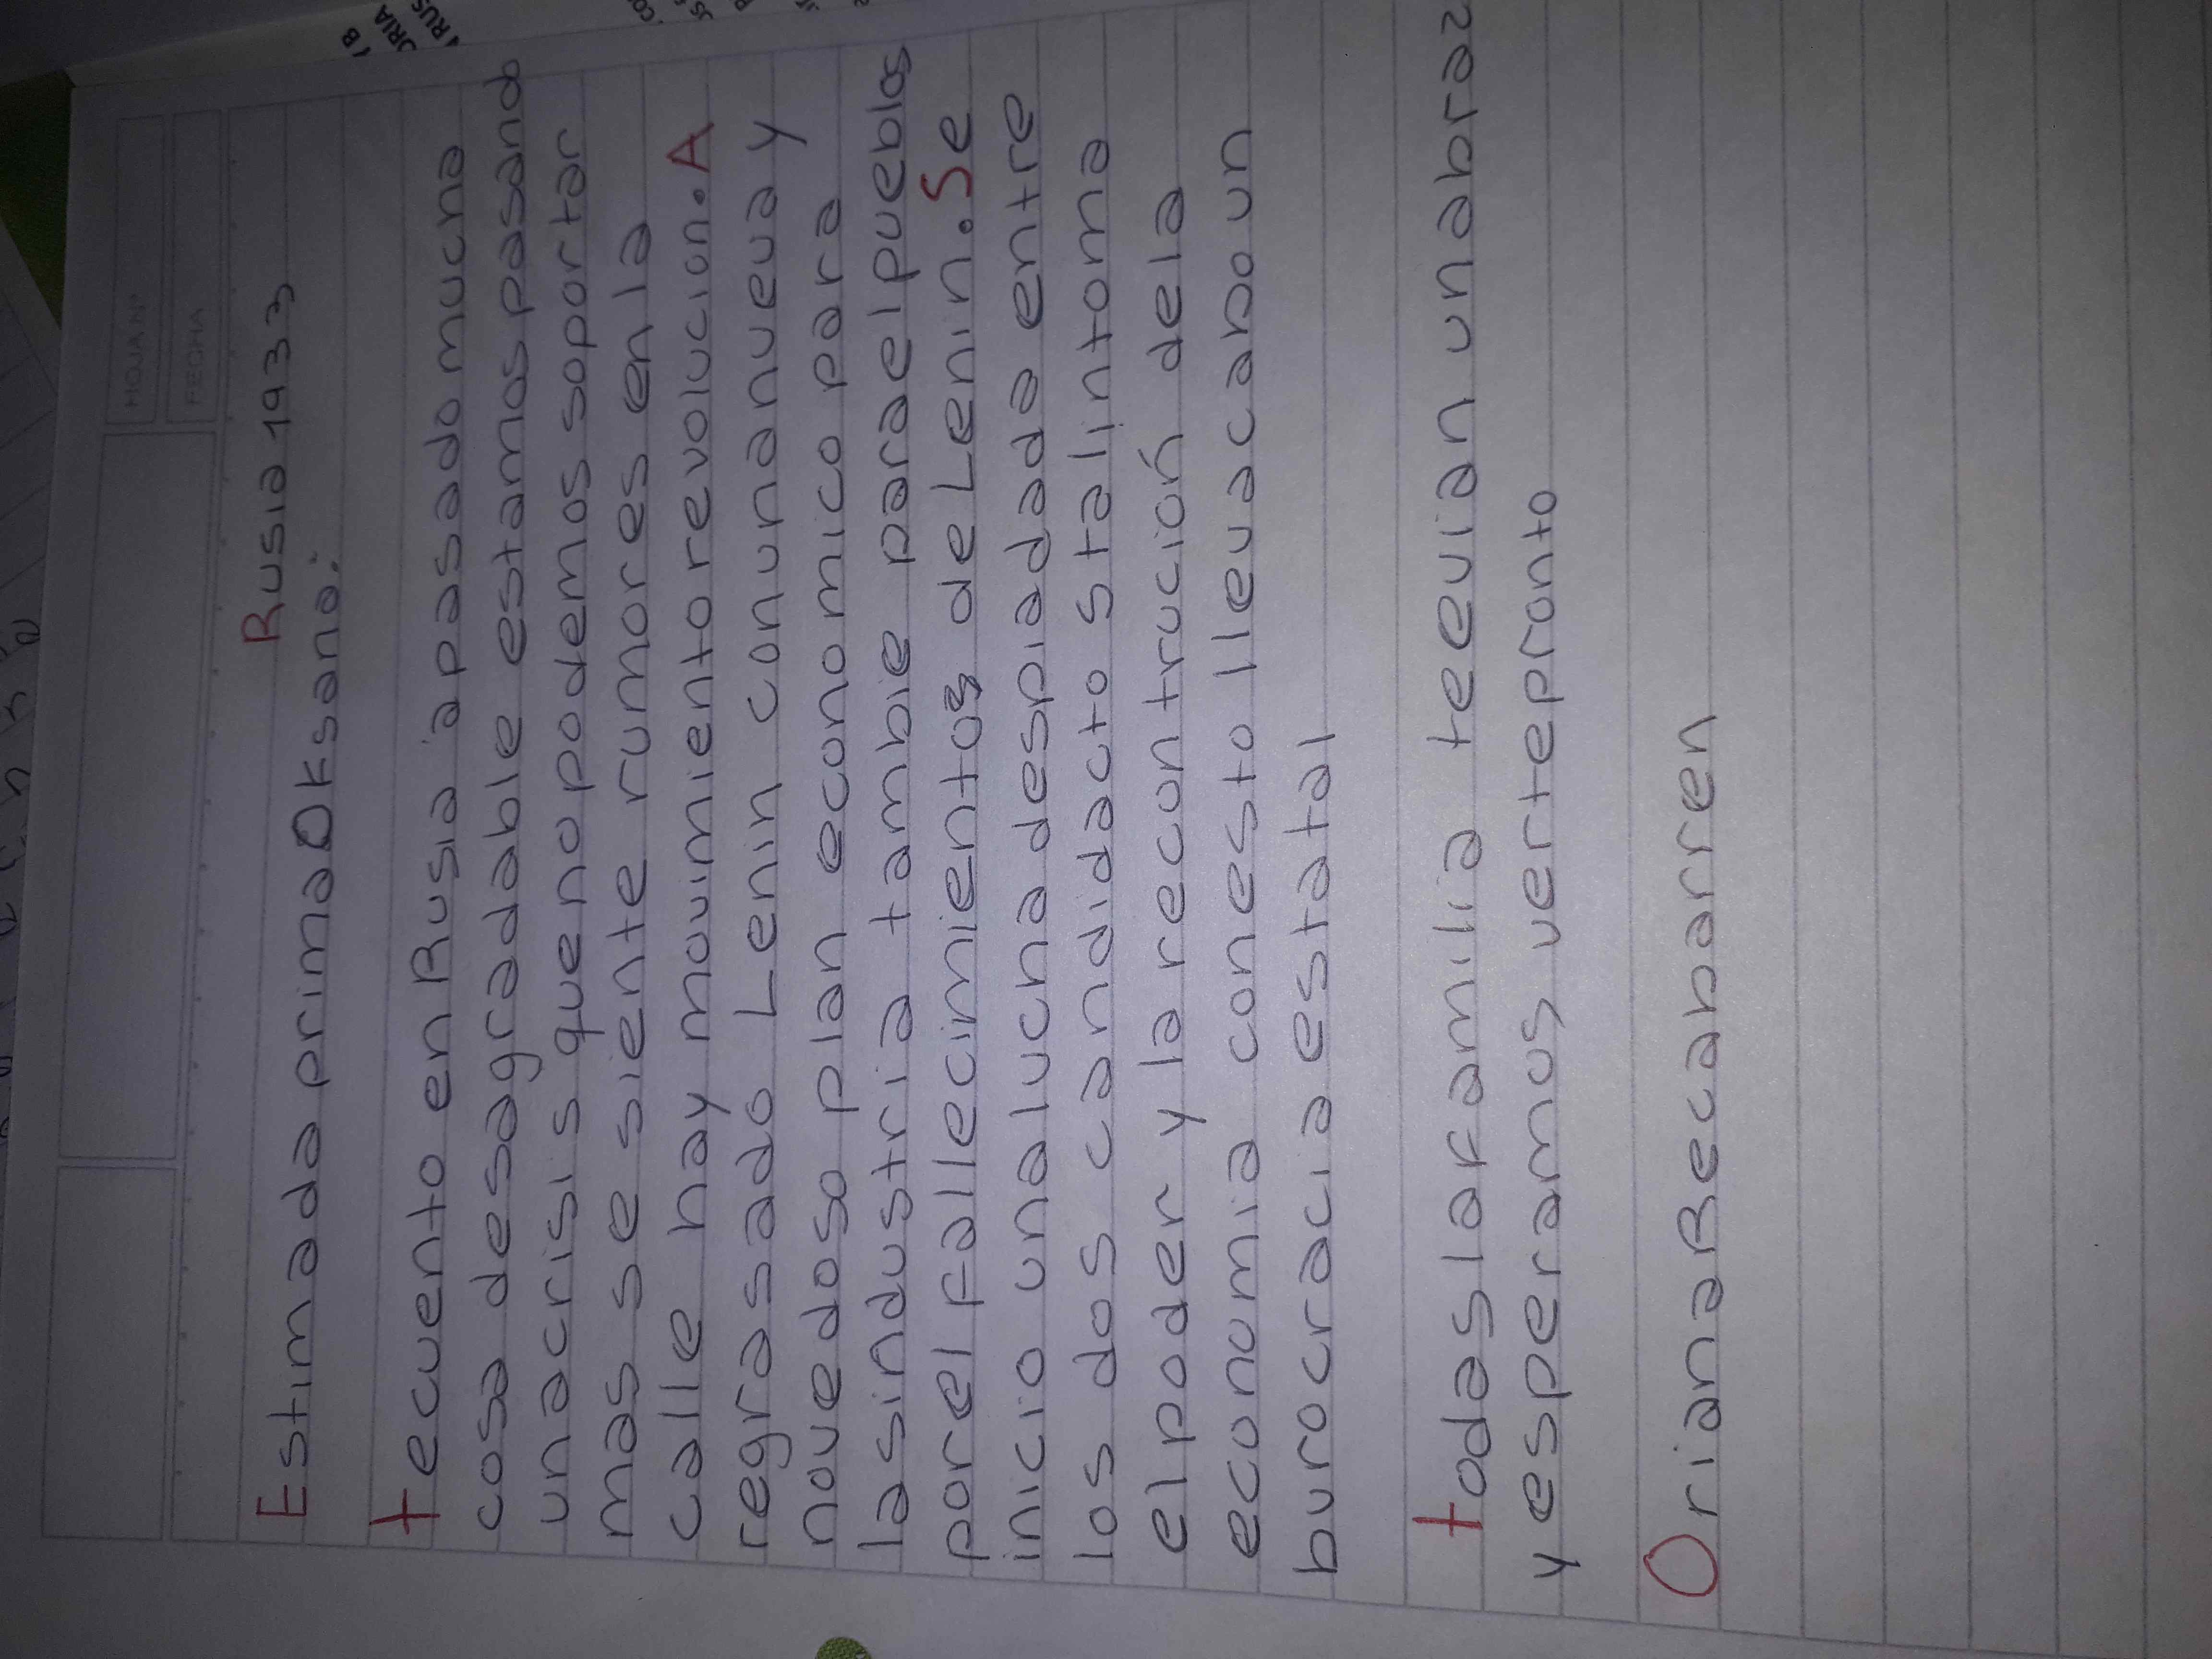 HOJA Nº
FECHA
Rusia 1933
Estimada prima Oksana:
te cuento en Rusia a pasado mucha
cosa desagradable estamos pasando
una crisis que no podemos soportar
mas se siente rumores en la
calle hay movimiento revolucion. A
regrasado Lenin con una nueva y
novedoso plan economico para
las industria tambie para el pueblos
por el fallecimientos de Lenin. Se
inicio una lucha despiadada entre
los dos candidacto stalin toma
el poder y la recontrución de la
economia con esto lleva cabo un
burocracia estatal
todas la familia te evian un abraz
y esperamos verte pronto
Oriana Recabarren